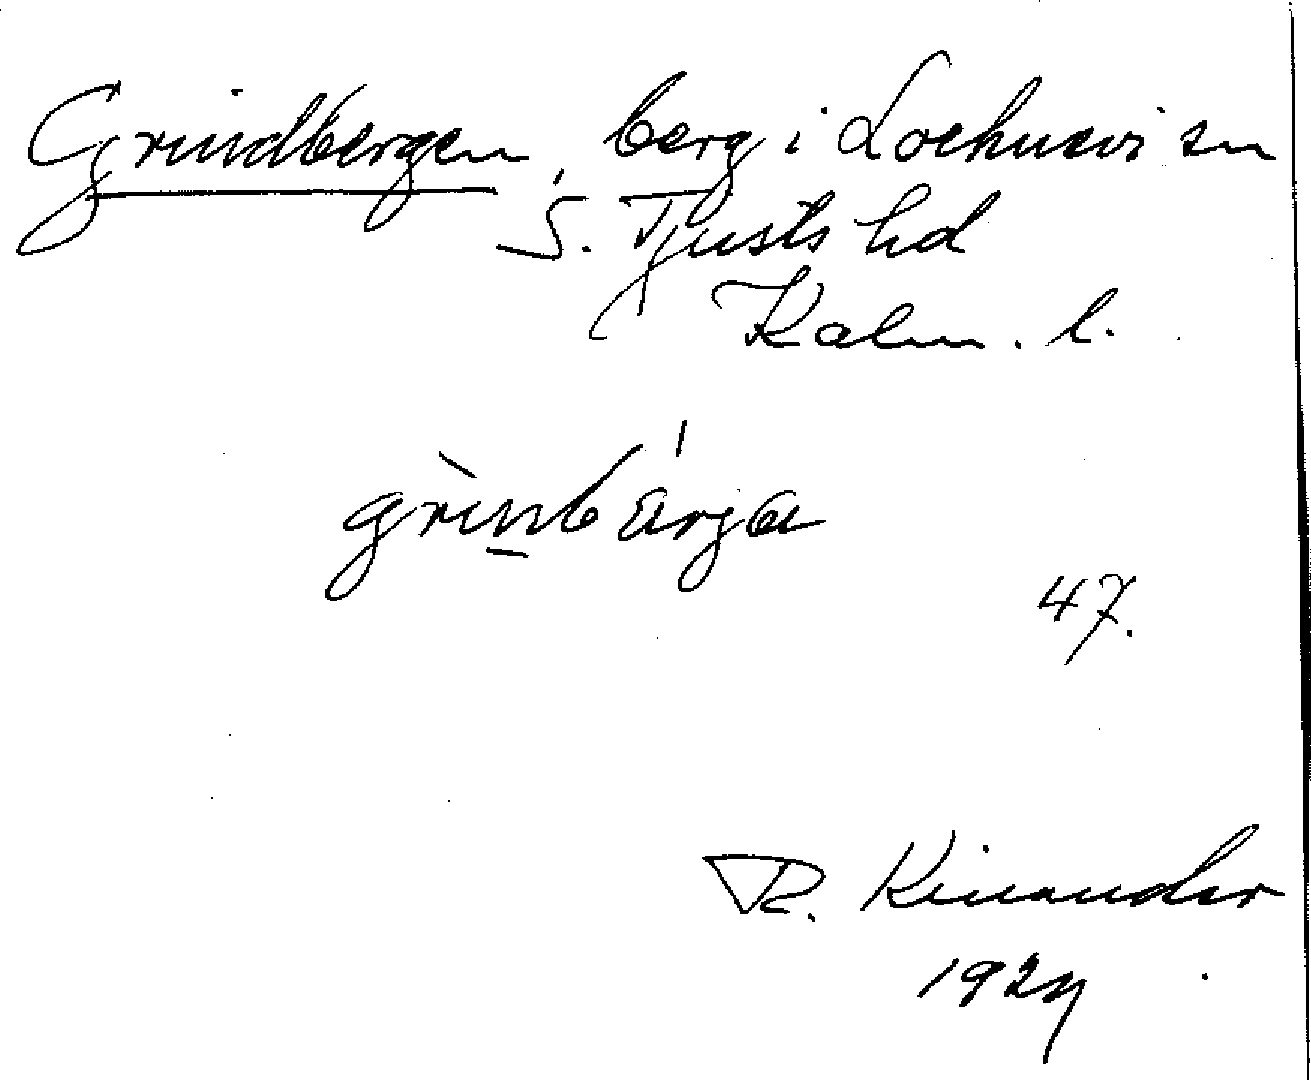 Grindbergen, berg i Locknevi sn
S. Tjusts hd
Kalm. l.
grìnbárja
47.
R. Kinander
1927